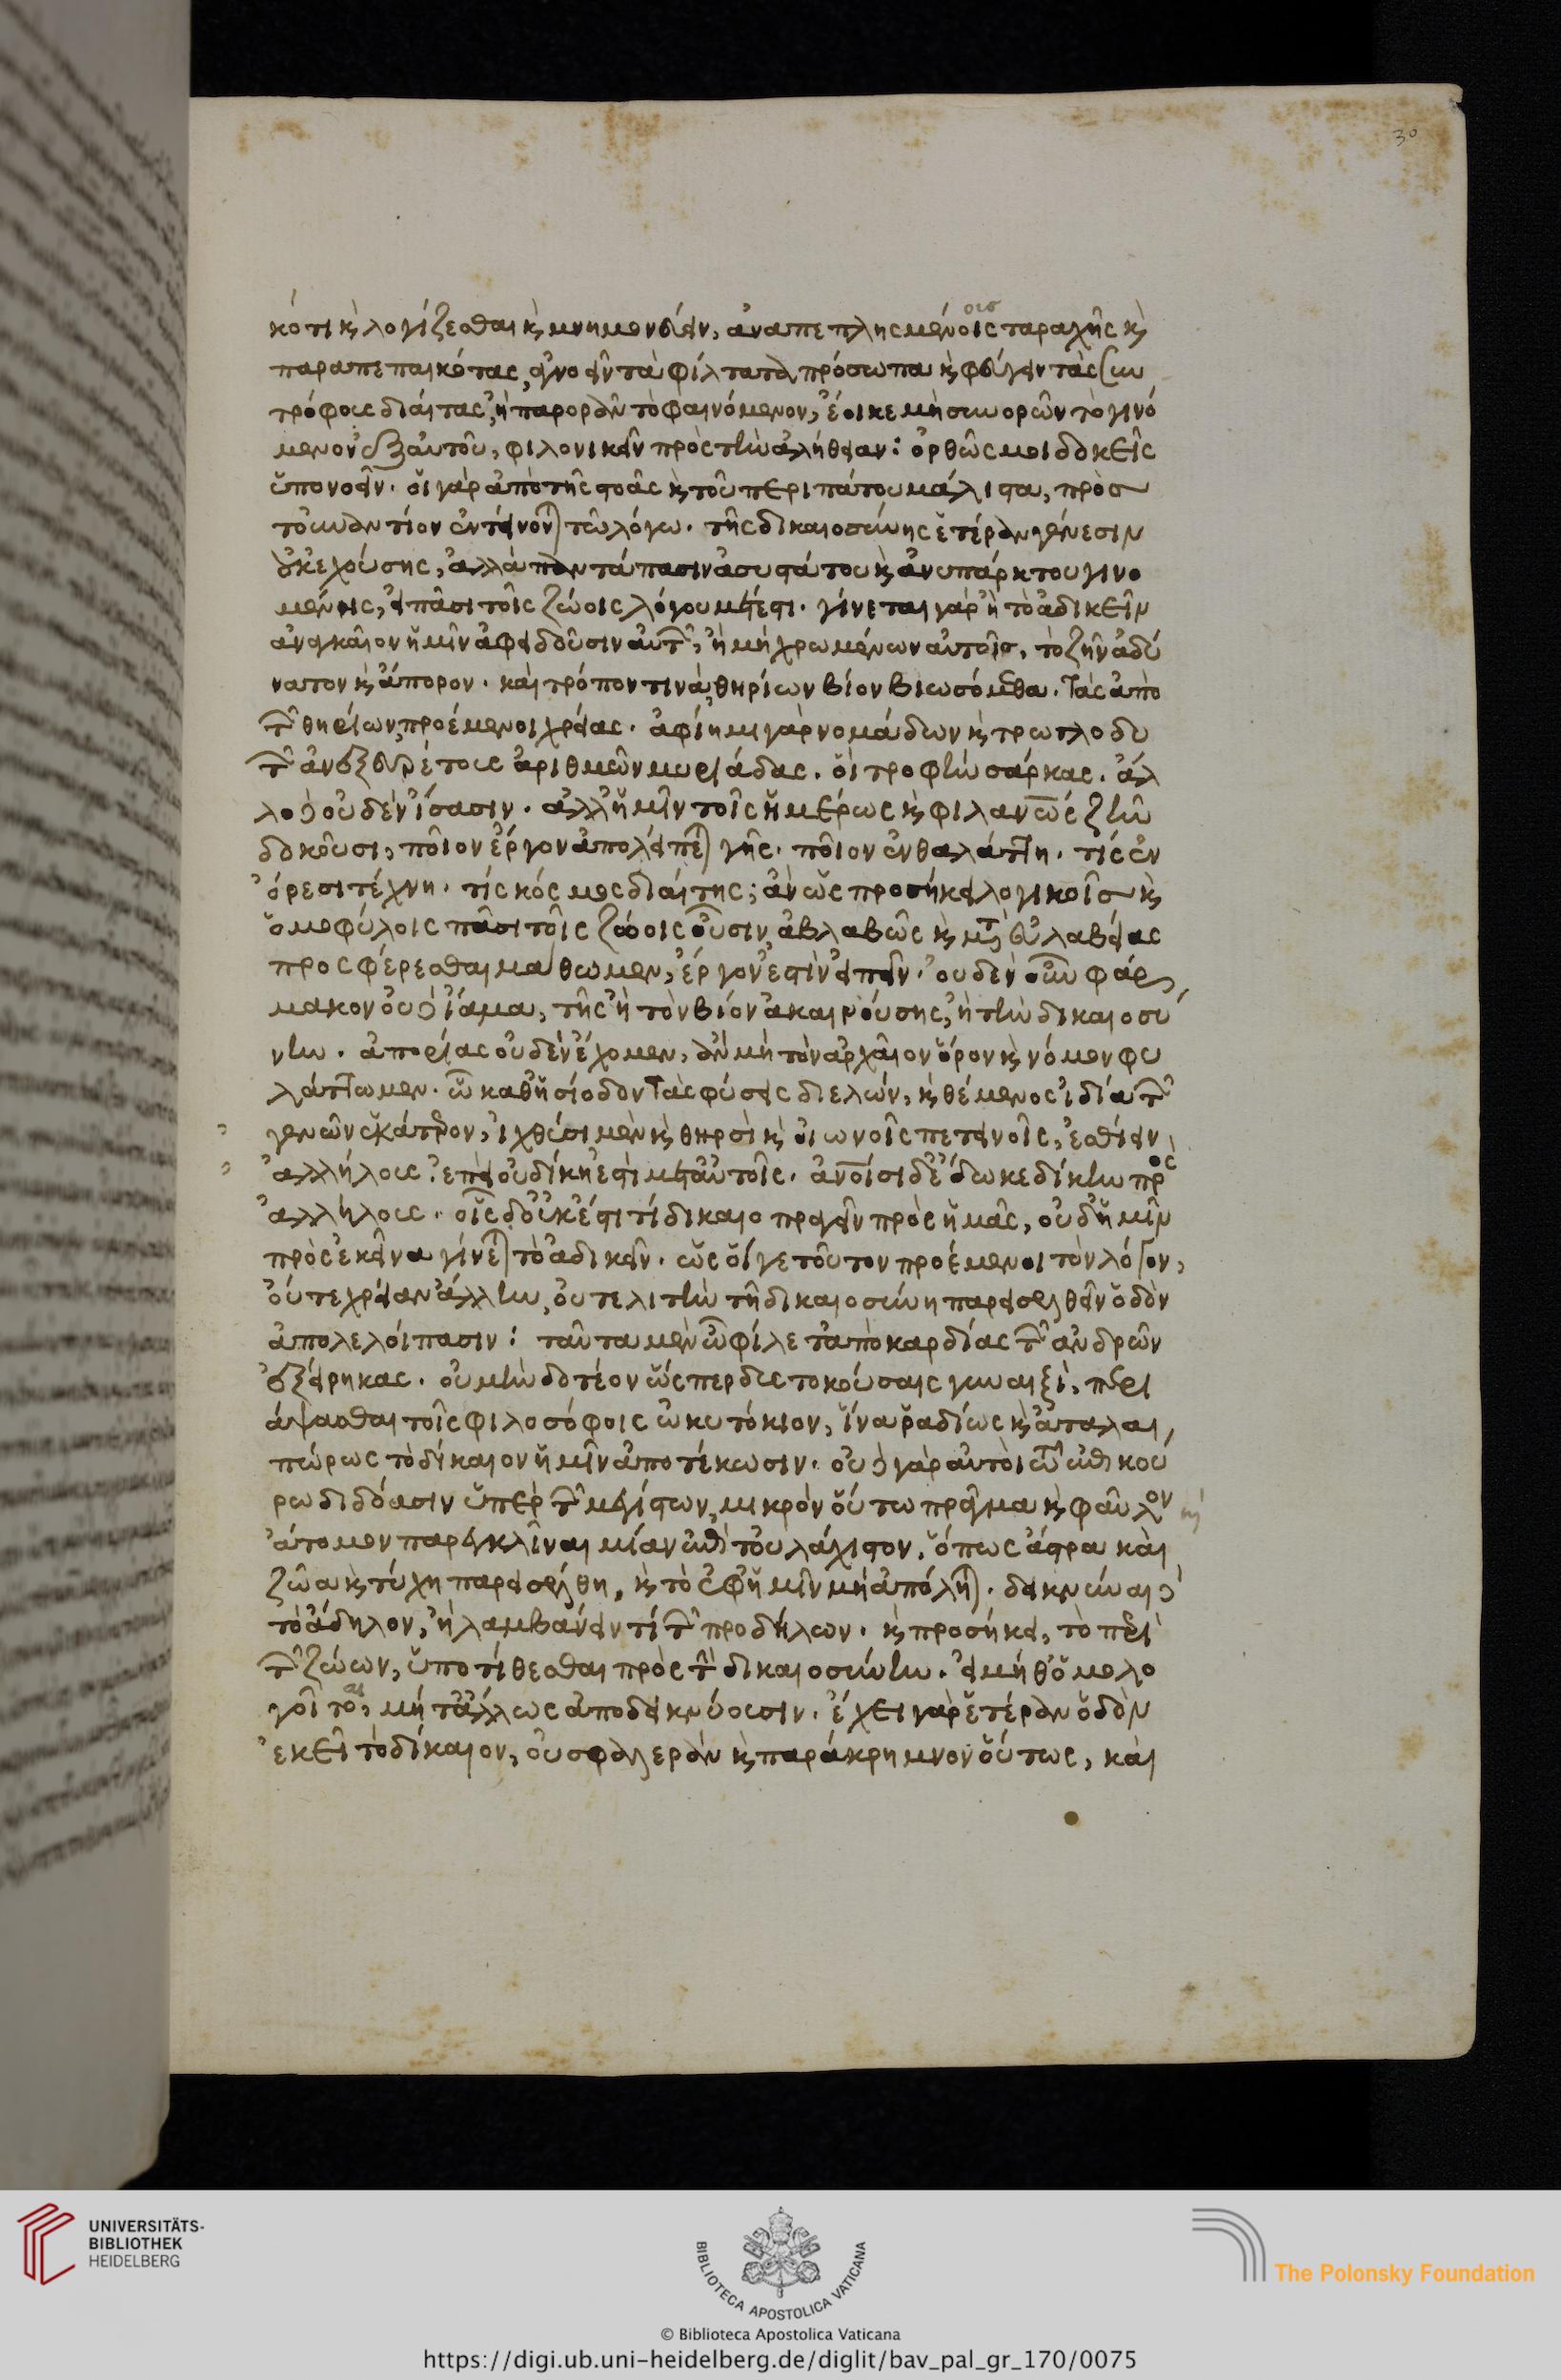 κότι καὶ λογίζεσθαι καὶ μνημονεύειν, ἀναπεπλησμένοις ταραχῆς καὶ
παραπεπαικότας, ἀγνοεῖν τὰ φίλτατα πρόσωπα καὶ φεύγειν τὰς συν
τρόφους διαίτας, ἢ παρορᾶν τὸ φαινόμενον, ἔοικε μὴ συνορῶν τὸ γινό
μενον ἐξ αὐτοῦ, φιλονικεῖν πρὸς τὴν ἀλήθειαν: ὀρθῶς μοι δοκεῖς
ὑπονοεῖν. οἱ γὰρ ἀπὸ τῆς στοᾶς καὶ τοῦ περιπάτου μάλιστα, πρὸς
τοὐναντίον ἐντείνονται τῶ λόγω. τῆς δικαιοσύνης ἑτέραν γένεσιν
οὐκ ἐχούσης, ἀλλὰ παντάπασιν ἀσυστάτου καὶ ἀνυπάρκτου γινο
μένης, εἰ πᾶσι τοῖς ζώοις λόγου μέτεστι. γίνεται γὰρ ἢ τὸ ἀδικεῖν
ἀναγκαῖον ἡμῖν ἀφειδοῦσιν αὐτῶν, ἢ μὴ χρωμένων αὐτοῖς, τὸ ζῆν ἀδύ
νατον καὶ ἄπορον. καὶ τρόπον τινὰ θηρίων βίον βιωσόμεθα. τὰς ἀπὸ
τῶν θηρίων προέμενοι χρείας. ἀφίημι γὰρ νομάδων καὶ τρωγλοδυ
τῶν ἀνεξευρέτους ἀριθμῶν μυριάδας. οἳ τροφὴν σάρκας. ἄλ
λο δὲ οὐδὲν ἴσασιν. ἀλλ' ἡμῖν τοῖς ἡμέρως καὶ φιλανθρώπως ζῆν
δοκοῦσι, ποῖον ἔργον ἀπολείπεται γῆς. ποῖον ἐν θαλάττη. τίς ἐν
ὄρεσι τέχνη. τίς κόσμος διαίτης; ἂν ὡς προσήκει λογικοῖς καὶ
ὁμοφύλοις πᾶσι τοῖς ζώοις οὖσιν ἀβλαβῶς καὶ μετ' εὐλαβείας
προσφέρεσθαι μάθωμεν, ἔργον ἐστὶν εἰπεῖν. οὐδὲν οὖν φάρ
μακον οὐδὲ ἴαμα, τῆς ἢ τὸν βίον ἀκαιρούσης, ἢ τὴν δικαιοσύ
νην. ἀπορίας οὐδὲν ἔχομεν, ἂν μὴ τὸν ἀρχαῖον ὅρον καὶ νόμον φυ
λάττωμεν. ὧ καθ' ἡσίοδον τὰς φύσεις διελών, καὶ θέμενος ἰδία τῶν
γενῶν ἑκάτερον, ἰχθύσι μὲν καὶ θηρσὶ καὶ οἰωνοῖς πετεινοῖς, ἐσθίειν
ἀλλήλους. ἐπεὶ οὐ δίκη ἐστὶ μετ' αὐτοῖς. ἀνθρώποισι δ' ἔδωκε δίκην πρὸς
ἀλλήλους. οἷς δ' οὐκ ἔστι τὶ δικαιοπραγεῖν πρὸς ἡμᾶς, οὐδ' ἡμῖν
πρὸς ἐκεῖνα γίνεται τὸ ἀδικεῖν. ὡς οἵ γε τοῦτον προέμενοι τὸν λόγον,
οὔτε χρείαν ἄλλην, οὔτε λιτὴν τῆ δικαιοσύνη παρεισελθεῖν ὁδὸν
ἀπολελοίπασιν: ταῦτα μὲν ὦ φίλε τἀπὸ καρδίας τῶν ἀνδρῶν
ἐξείρηκας. οὐ μὴν δοτέον ὥσπερ δυστοκούσαις γυναιξὶ, περι
άψασθαι τοῖς φιλοσόφοις ὠκυτόκιον, ἵνα ῥαδίως καὶ ἀταλαι
πώρως τὸ δίκαιον ἡμῖν ἀποτέκωσιν. οὐδὲ γὰρ αὐτοὶ τῶ ἐπικού
ρω διδόασιν ὑπὲρ τῶν μεγίστων, μικρὸν οὕτω πρᾶγμα καὶ φαῦλον
ἄτομον παρεγκλῖναι μίαν ἐπὶ τοὐλάχιστον, ὅπως ἄστρα καὶ
ζῶα καὶ τύχη παρεισέλθη, καὶ τὸ ἐφ' ἡμῖν μὴ ἀπόληται. δεικνύναι δὲ
τὸ ἄδηλον, ἢ λαμβάνειν τί τῶν προδήλων. καὶ προσήκει, τὸ περὶ
τῶν ζώων, ὑποτίθεσθαι πρὸς τὴν δικαιοσύνην. εἰ μήθ' ὁμολο
γοῖτο, μήτ' ἄλλως ἀποδεικνύουσιν. ἔχει γὰρ ἑτέραν ὁδὸν
ἐκεῖ τὸ δίκαιον, οὐ σφαλερὰν καὶ παράκρημνον οὕτως, καὶ
30
UNIVERSITÄTS-
BIBLIOTHEK
HEIDELBERG
BIBLIOTECA APOSTOLICA VATICANA
The Polonsky Foundation
© Biblioteca Apostolica Vaticana
https://digi.ub.uni-heidelberg.de/diglit/bav_pal_gr_170/0075